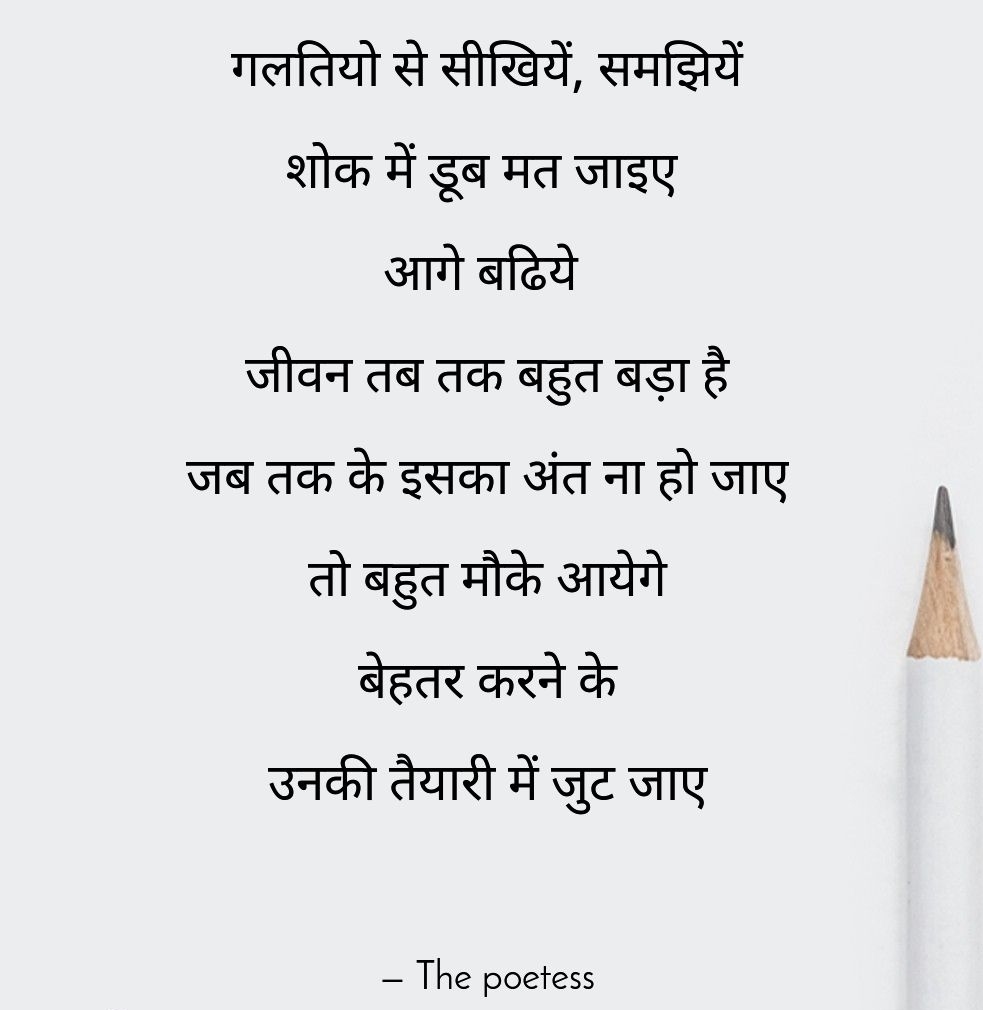 गलतियो से सीखियें, समझियें
शोक में डूब मत जाइए
आगे बढिये
जीवन तब तक बहुत बड़ा है
जब तक के इसका अंत ना हो जाए
तो बहुत मौके आयेगे
बेहतर करने के
उनकी तैयारी में जुट जाए
– The poetess